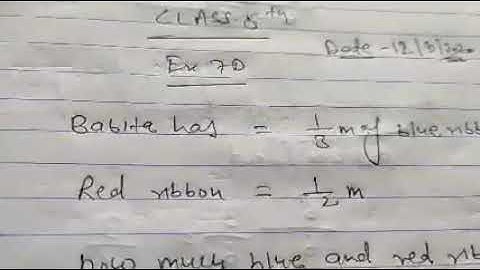 CLASS 5th
Date - 12/5/2020
Ex 7D
Babita has = 1/3 m of blue ribb
Red ribbon = 1/2 m
how much blue and red rib